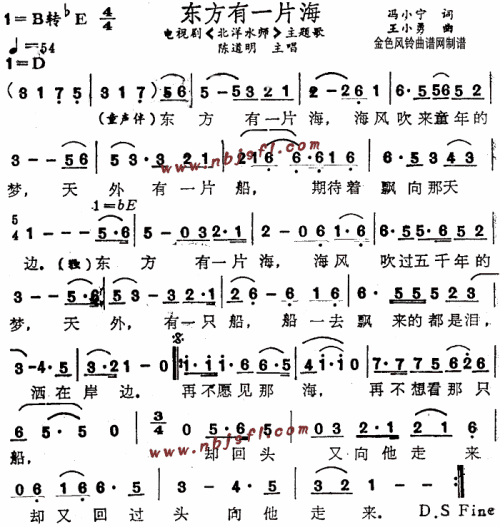 1=B转♭E 4/4
东方有一片海
冯小宁 词
♩=54
电视剧《北洋水师》主题歌
王小勇 曲
1=D
陈道明 主唱
金色风铃曲谱网制谱
(3 1 7 5 | 3 1 7 5) 5 6 | 5 - 5 3 2 1 | 2 - 2 6 1 | 6 · 5 5 6 5 2 |
(童声伴)东 方 有一片 海, 海风 吹来童年的
3 - - 5 6 | 5 3 · 3 2 1 | 2 1 6 6 · 6 1 6 | 5 · 5 3 4 3 |
www.nbjsfl.com
梦, 天 外 有 一 片 船, 期待着 飘 向那天
1=bE
5/4 1 - - - 5 · 6 | 5 - 0 3 2 · 1 | 2 - 0 6 1 · 6 | 6 · 5 5 · 6 5 2 |
边。(独)东 方 有一片 海, 海 风 吹过五千年的
梦, 天 外, 有一 只 船, 船 一去飘 来的都是泪,
3 - 4 · 5 | 3 · 2 1 - 0
洒在 岸 边。 再不愿见那 海, 再 不想看那 只
6 5 · 5 0 | 3/4 0 5 · 6 5 | 0 3 2 1 2 | 0 6 6
www.nbjsfl.com
船, 却回头 又向他 走 来
0 6 1 6 6 · 5 | 3 - 4 · 5 | 3 · 2 1 - -
却 又 回 过 头 向 他 走 来。 D.S Fine